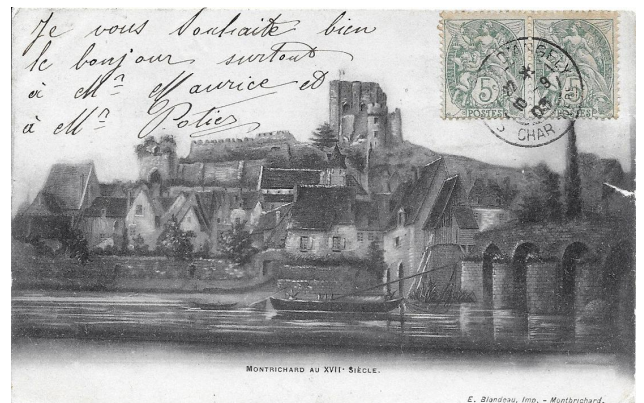 Je vous souhaite bien
le bonjour surtout
à Mr Maurice et
à Mr Potier
5c
POSTES
POSTES
CHAR
MONTRICHARD AU XVIIe SIÈCLE.
E. Blondeau, Imp. - Montrichard.